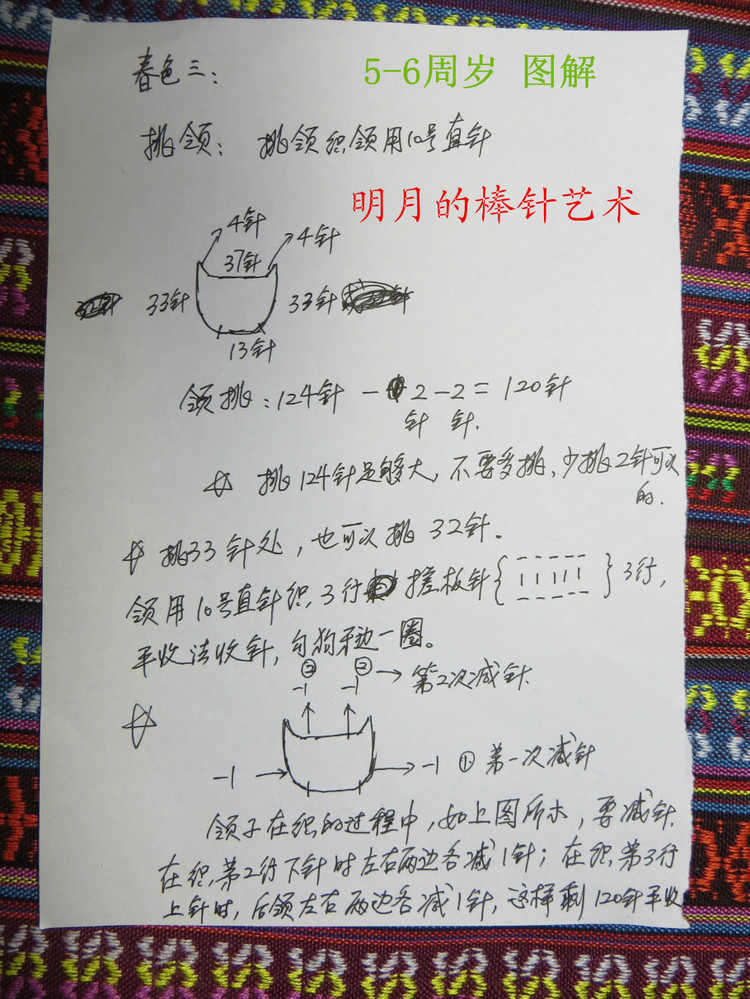 春色三：
5-6周岁 图解
挑领：挑领织领用10号直针
明月的棒针艺术
4针 4针
37针
33针 33针
13针
领挑：124针 - 2 - 2 = 120针
针 针.
挑124针足够大，不要多挑、少挑2针可以
的.
挑33针处，也可以挑32针。
领用10号直针织，3行 搓板针{ - - - - - | | | | | - - - - - }3行，
平收法收针，勾狗牙边一圈。
② ②
-1 -1 → 第2次减针
-1 → → -1 ① 第一次减针
领子在织的过程中，如上图所示，要减针.
在织第2行下针时左右两边各减1针；在织第3行
上针时，后领左右两边各减1针，这样剩120针平收